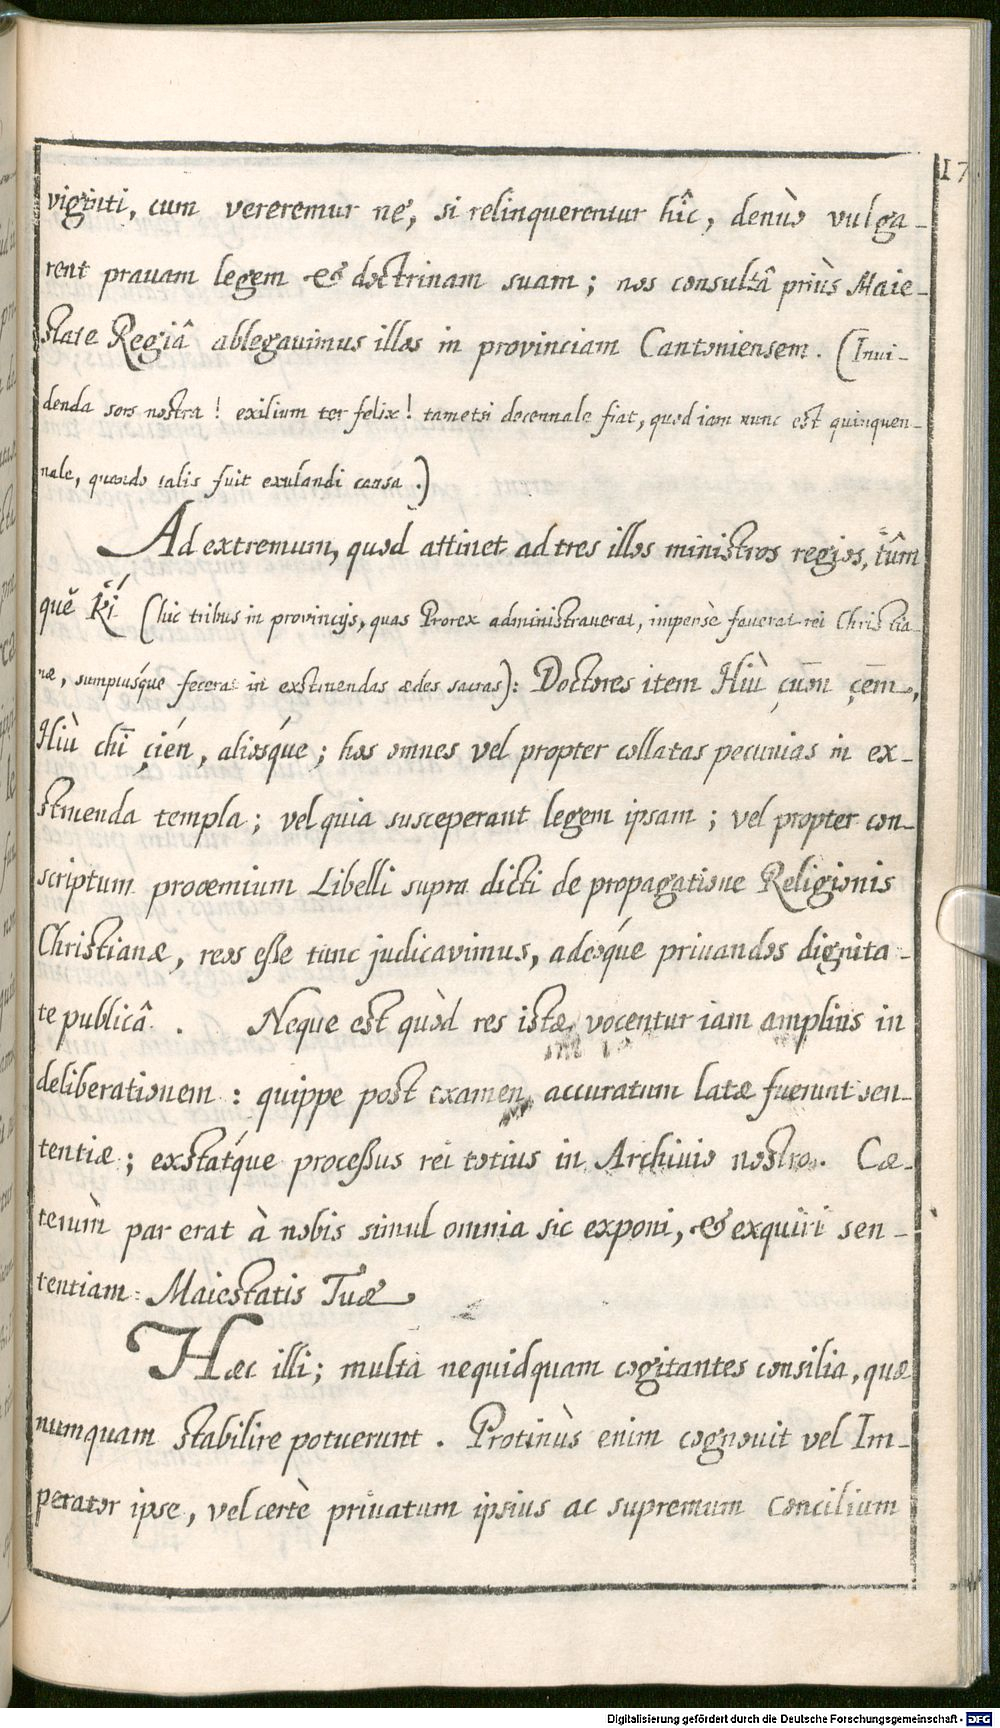 17
viginti, cum vereremur ne, si relinquerentur hîc, denùo vulga-
rent prauam legem & doctrinam suam; nos consultâ priùs Maie-
state Regiâ ablegauimus illos in provinciam Cantoniensem. (Invi-
denda sors nostra! exilium ter felix! tametsi decennale fiat, quod iam nunc est quinquen-
nale, quando talis fuit exulandi causa.)
Ad extremum, quod attinet ad tres illos ministros regios, tûm
quĕ Kí (hic tribus in provincijs, quas Prorex administrauerat, impensè fauerat rei Christia-
næ, sumptusque fecerat in exstruendas ædes sacras): Doctores item Hiù çuōn çēm,
Hiù chī çién, aliosque; hos omnes vel propter collatas pecunias in ex-
struenda templa; vel quia susceperant legem ipsam; vel propter con-
scriptum prooemium Libelli supra dicti de propagatione Religionis
Christianæ, reos esse tunc judicavimus, adeóque priuandos dignita-
te publicâ. Neque est quòd res istæ vocentur iam ampliùs in
deliberationem: quippe post examen accuratum latæ fuerunt sen-
tentiæ; exstátque processus rei totius in Archiuio nostro. Cæ-
terùm par erat à nobis simul omnia sic exponi, & exquiri sen-
tentiam Maiestatis Tuæ
Hæc illi; multa nequidquam cogitantes consilia, quæ
numquam stabilire potuerunt. Protinùs enim cognouit vel Im-
perator ipse, vel certè priuatum ipsius ac supremum Concilium
Digitalisierung gefördert durch die Deutsche Forschungsgemeinschaft - DFG